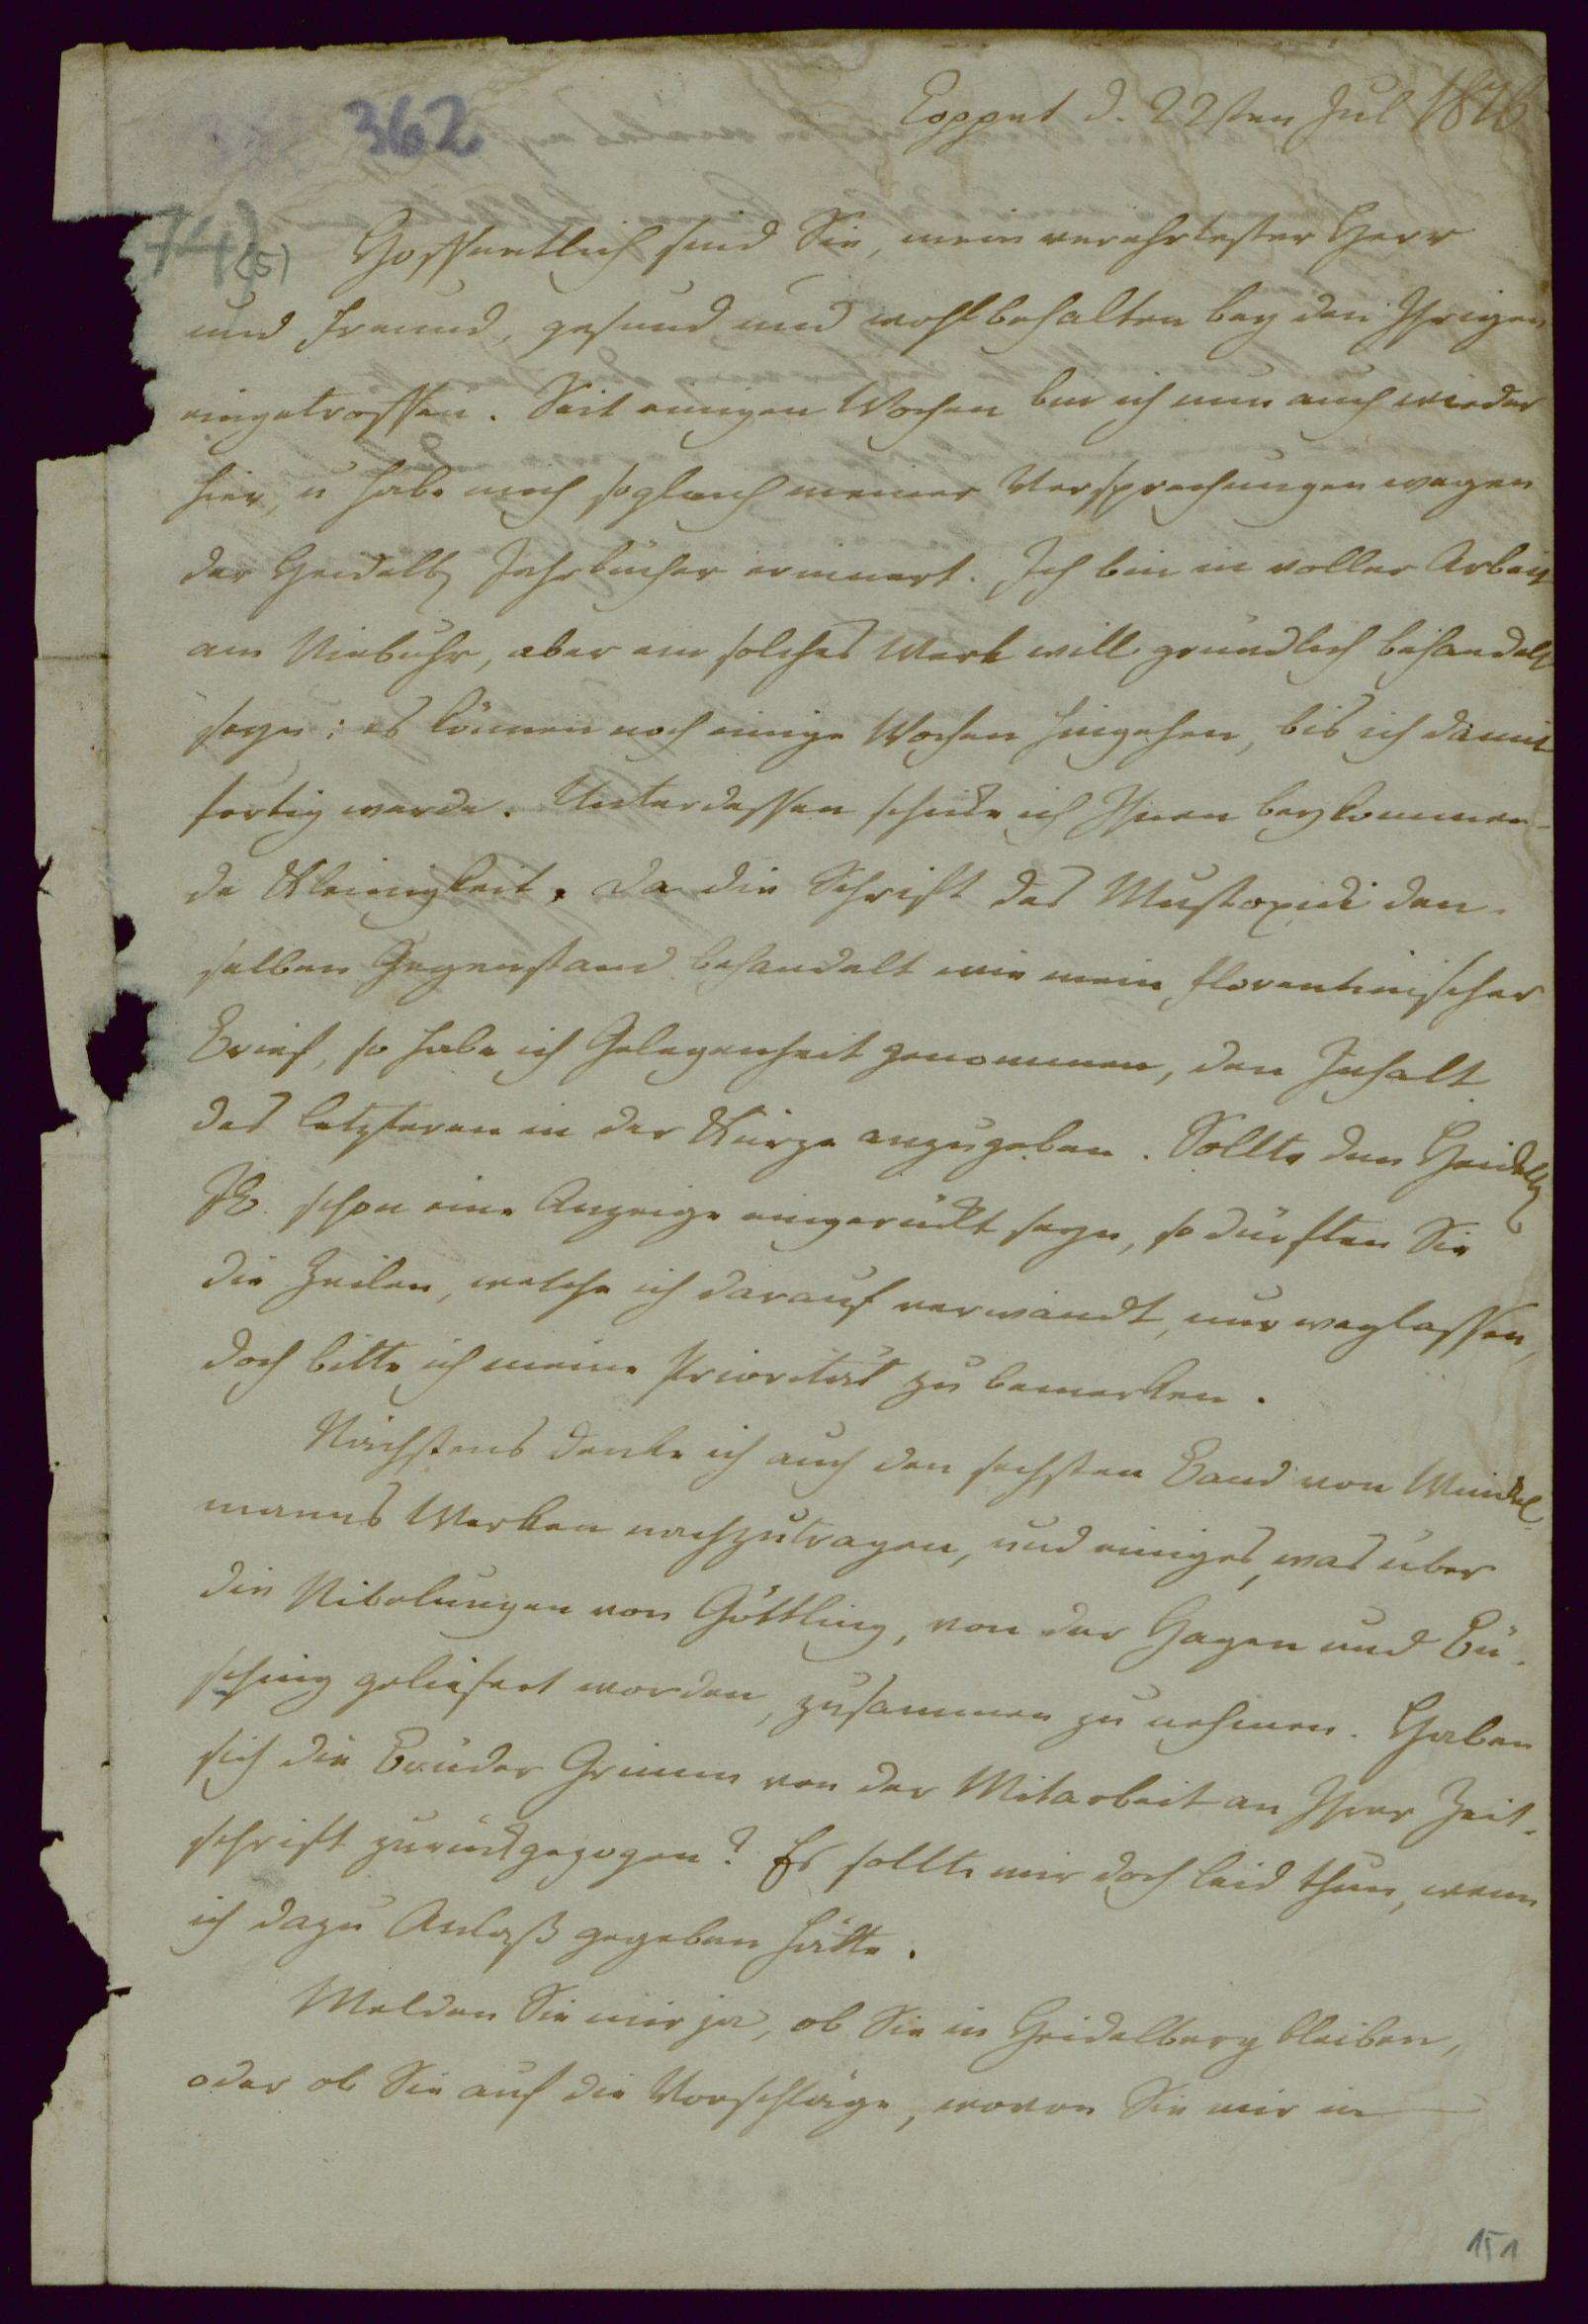 362
Coppet d. 22sten Jul 1816
74)(5)
Hoffentlich sind Sie, mein verehrtester Herr
und Freund, gesund und wohlbehalten bey den Ihrigen
eingetroffen. Seit einigen Wochen bin ich nun auch wieder
hier, u habe mich sogleich meiner Versprechungen wegen
der Heidelb Jahrbücher erinnert. Ich bin in voller Arbeit
am Niebuhr, aber ein solches Werk will gründlich behandelt
seyn: es können noch einige Wochen hingehen, bis ich damit
fertig werde. Unterdessen schicke ich Ihnen beykommen-
de Kleinigkeit. Da die Schrift des Mustoxidi den-
selben Gegenstand behandelt wie mein florentinischer
Brief, so habe ich Gelegenheit genommen, den Inhalt
des letzteren in der Kürze anzugeben. Sollte den Heidelb
JB. schon eine Anzeige eingerückt seyn, so dürften Sie
die Zeilen, welche ich darauf verwandt, nur weglassen,
doch bitte ich meine Priorität zu bemerken.
Nächstens denke ich auch den sechsten Band von Winckel-
manns Werken nachzutragen, und einiges, was über
die Nibelungen von Göttling, von der Hagen und Bü-
sching geliefert worden, zusammen zu nehmen. Haben
sich die Brüder Grimm von der Mitarbeit an Ihrer Zeit-
schrift zurückgezogen? Es sollte mir doch leid thun, wenn
ich dazu Anlaß gegeben hätte.
Melden Sie mir ja, ob Sie in Heidelberg bleiben,
oder ob Sie auf die Vorschläge, wovon Sie mir in
151